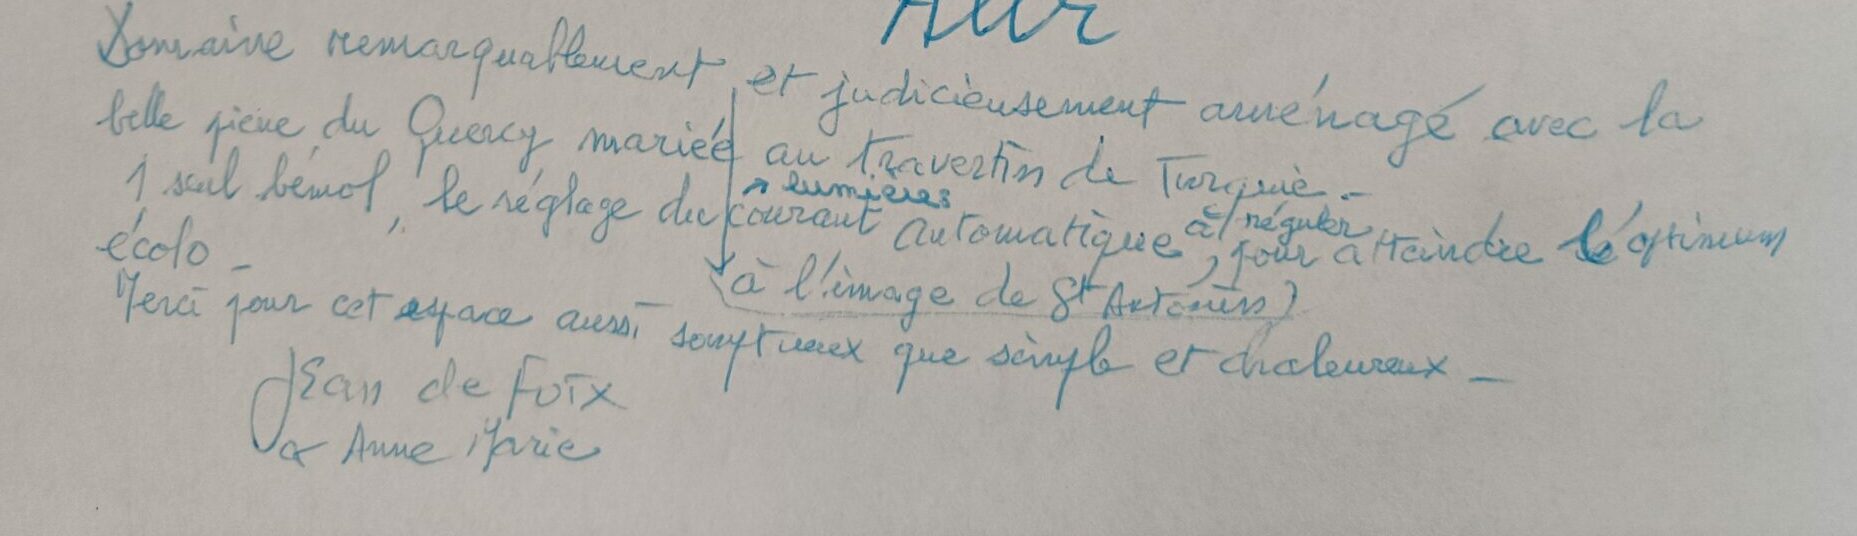 Domaine remarquablement et judicieusement aménagé avec la
belle pierre du Quercy mariée au travertin de Turquie -
lumières
1 seul bémol, le réglage du courant automatique à réguler, pour atteindre l'optimum
écolo -
(à l'image de St Antonin)
Merci pour cet espace aussi somptueux que simple et chaleureux -
Jean de Foix
& Anne Marie